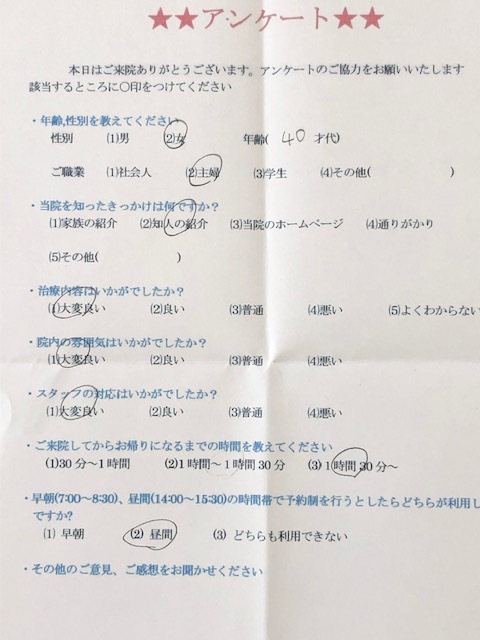 ★★アンケート★★
本日はご来院ありがとうございます。アンケートのご協力をお願いいたします
該当するところに〇印をつけてください
・年齢,性別を教えてください
性別 (1)男 (2)女 年齢( 40 才代)
ご職業 (1)社会人 (2)主婦 (3)学生 (4)その他( )
・当院を知ったきっかけは何ですか?
(1)家族の紹介 (2)知人の紹介 (3)当院のホームページ (4)通りがかり
(5)その他( )
・治療内容はいかがでしたか?
(1)大変良い (2)良い (3)普通 (4)悪い (5)よくわからない
・院内の雰囲気はいかがでしたか?
(1)大変良い (2)良い (3)普通 (4)悪い
・スタッフの対応はいかがでしたか?
(1)大変良い (2)良い (3)普通 (4)悪い
・ご来院してからお帰りになるまでの時間を教えてください
(1)30分～1時間 (2)1時間～1時間30分 (3)1時間30分～
・早朝(7:00～8:30)、昼間(14:00～15:30)の時間帯で予約制を行うとしたらどちらが利用し
ですか?
(1) 早朝 (2) 昼間 (3) どちらも利用できない
・その他のご意見、ご感想をお聞かせください